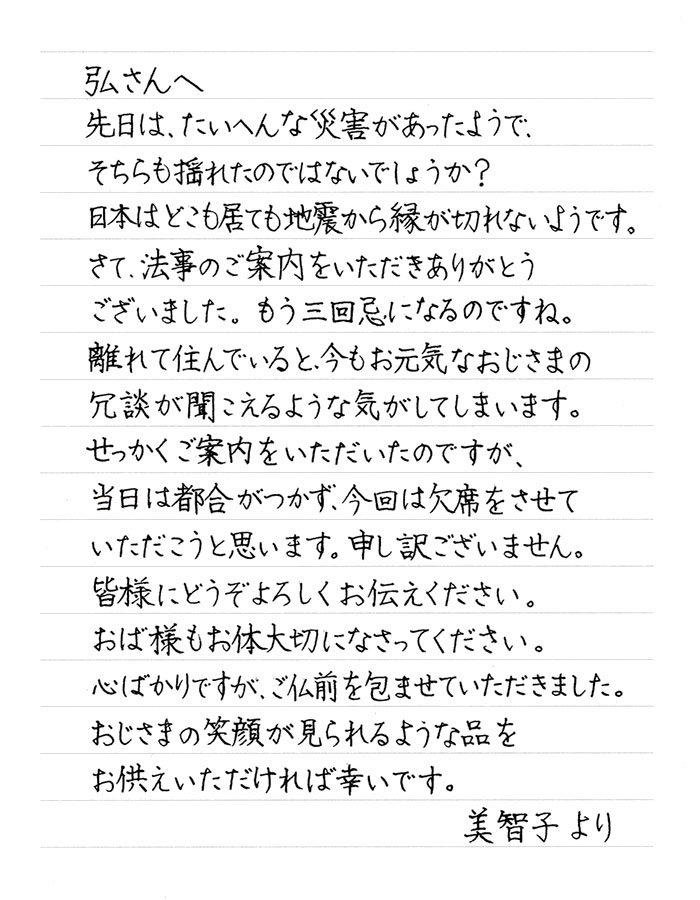 弘さんへ
先日は、たいへんな災害があったようで、
そちらも揺れたのではないでしょうか？
日本はどこも居ても地震から縁が切れないようです。
さて、法事のご案内をいただきありがとう
ございました。もう三回忌になるのですね。
離れて住んでいると、今もお元気なおじさまの
冗談が聞こえるような気がしてしまいます。
せっかくご案内をいただいたのですが、
当日は都合がつかず、今回は欠席をさせて
いただこうと思います。申し訳ございません。
皆様にどうぞよろしくお伝えください。
おば様もお体大切になさってください。
心ばかりですが、ご仏前を包ませていただきました。
おじさまの笑顔が見られるような品を
お供えいただければ幸いです。
美智子より